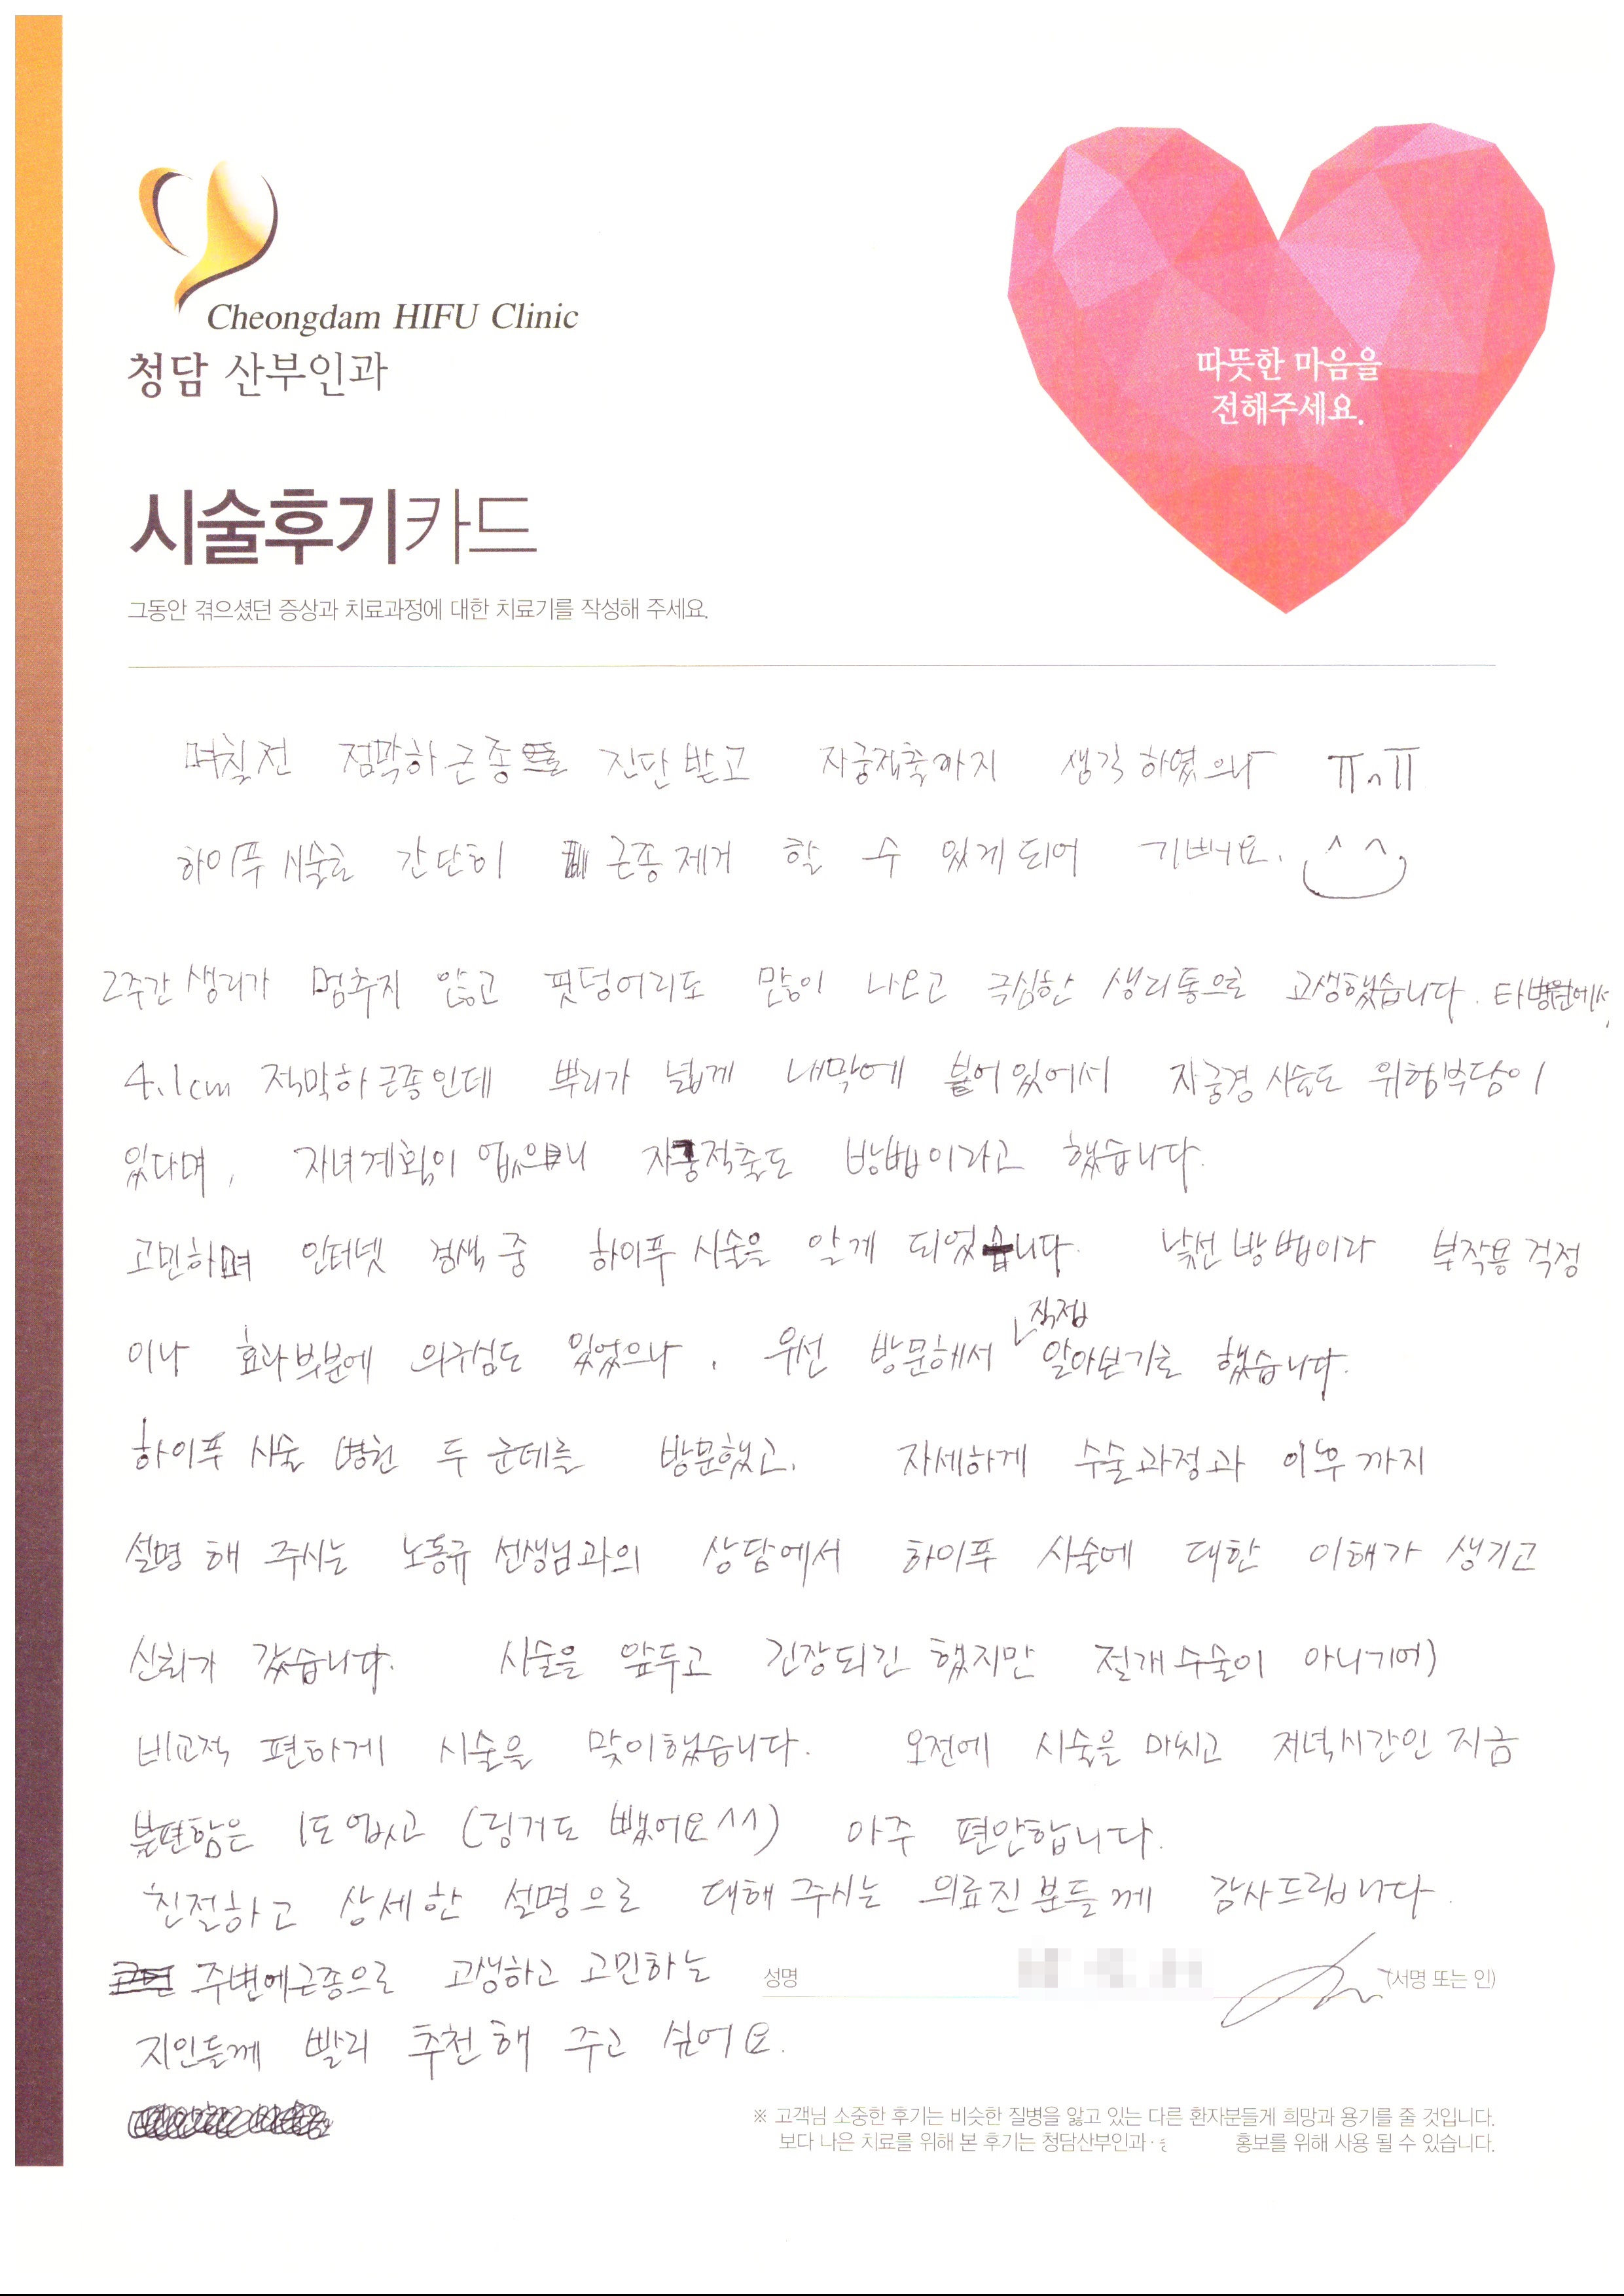 Cheongdam HIFU Clinic
청담 산부인과
따뜻한 마음을
전해주세요.
시술후기카드
그동안 겪으셨던 증상과 치료과정에 대한 치료기를 작성해 주세요.
며칠전 점막하근종을 진단받고 자궁적출까지 생각하였으나 ㅠㅠ
하이푸 시술로 간단히 근종제거 할 수 있게되어 기뻐요.
2주간 생리가 멈추지 않고 핏덩어리도 많이 나오고 극심한 생리통으로 고생했습니다. 타병원에서
4.1cm 점막하근종인데 뿌리가 넓게 내막에 붙어있어서 자궁경시술도 위험부담이
있다며, 자녀계획이 없으니 자궁적출도 방법이라고 했습니다.
고민하며 인터넷 검색 중 하이푸 시술을 알게 되었습니다. 낯선 방법이라 부작용 걱정
이나 효과부분에 의구심도 있었으나, 우선 방문해서 직접 알아보기로 했습니다.
하이푸 시술 병원 두 군데를 방문했고, 자세하게 수술과정과 이후까지
설명 해 주시는 노동규 선생님과의 상담에서 하이푸 시술에 대한 이해가 생기고
신뢰가 갔습니다. 시술을 앞두고 긴장되긴 했지만 절개수술이 아니기에
비교적 편하게 시술을 맞이했습니다. 오전에 시술을 마치고 저녁시간인 지금
불편함은 1도 없고 (링거도 뺐어요^^) 아주 편안합니다.
친절하고 상세한 설명으로 대해 주시는 의료진분들께 감사드립니다.
주변에 근종으로 고생하고 고민하는
성명 (서명 또는 인)
지인들께 빨리 추천해 주고 싶어요.
※ 고객님 소중한 후기는 비슷한 질병을 앓고 있는 다른 환자분들게 희망과 용기를 줄 것입니다.
보다 나은 치료를 위해 본 후기는 청담산부인과· 홍보를 위해 사용 될 수 있습니다.